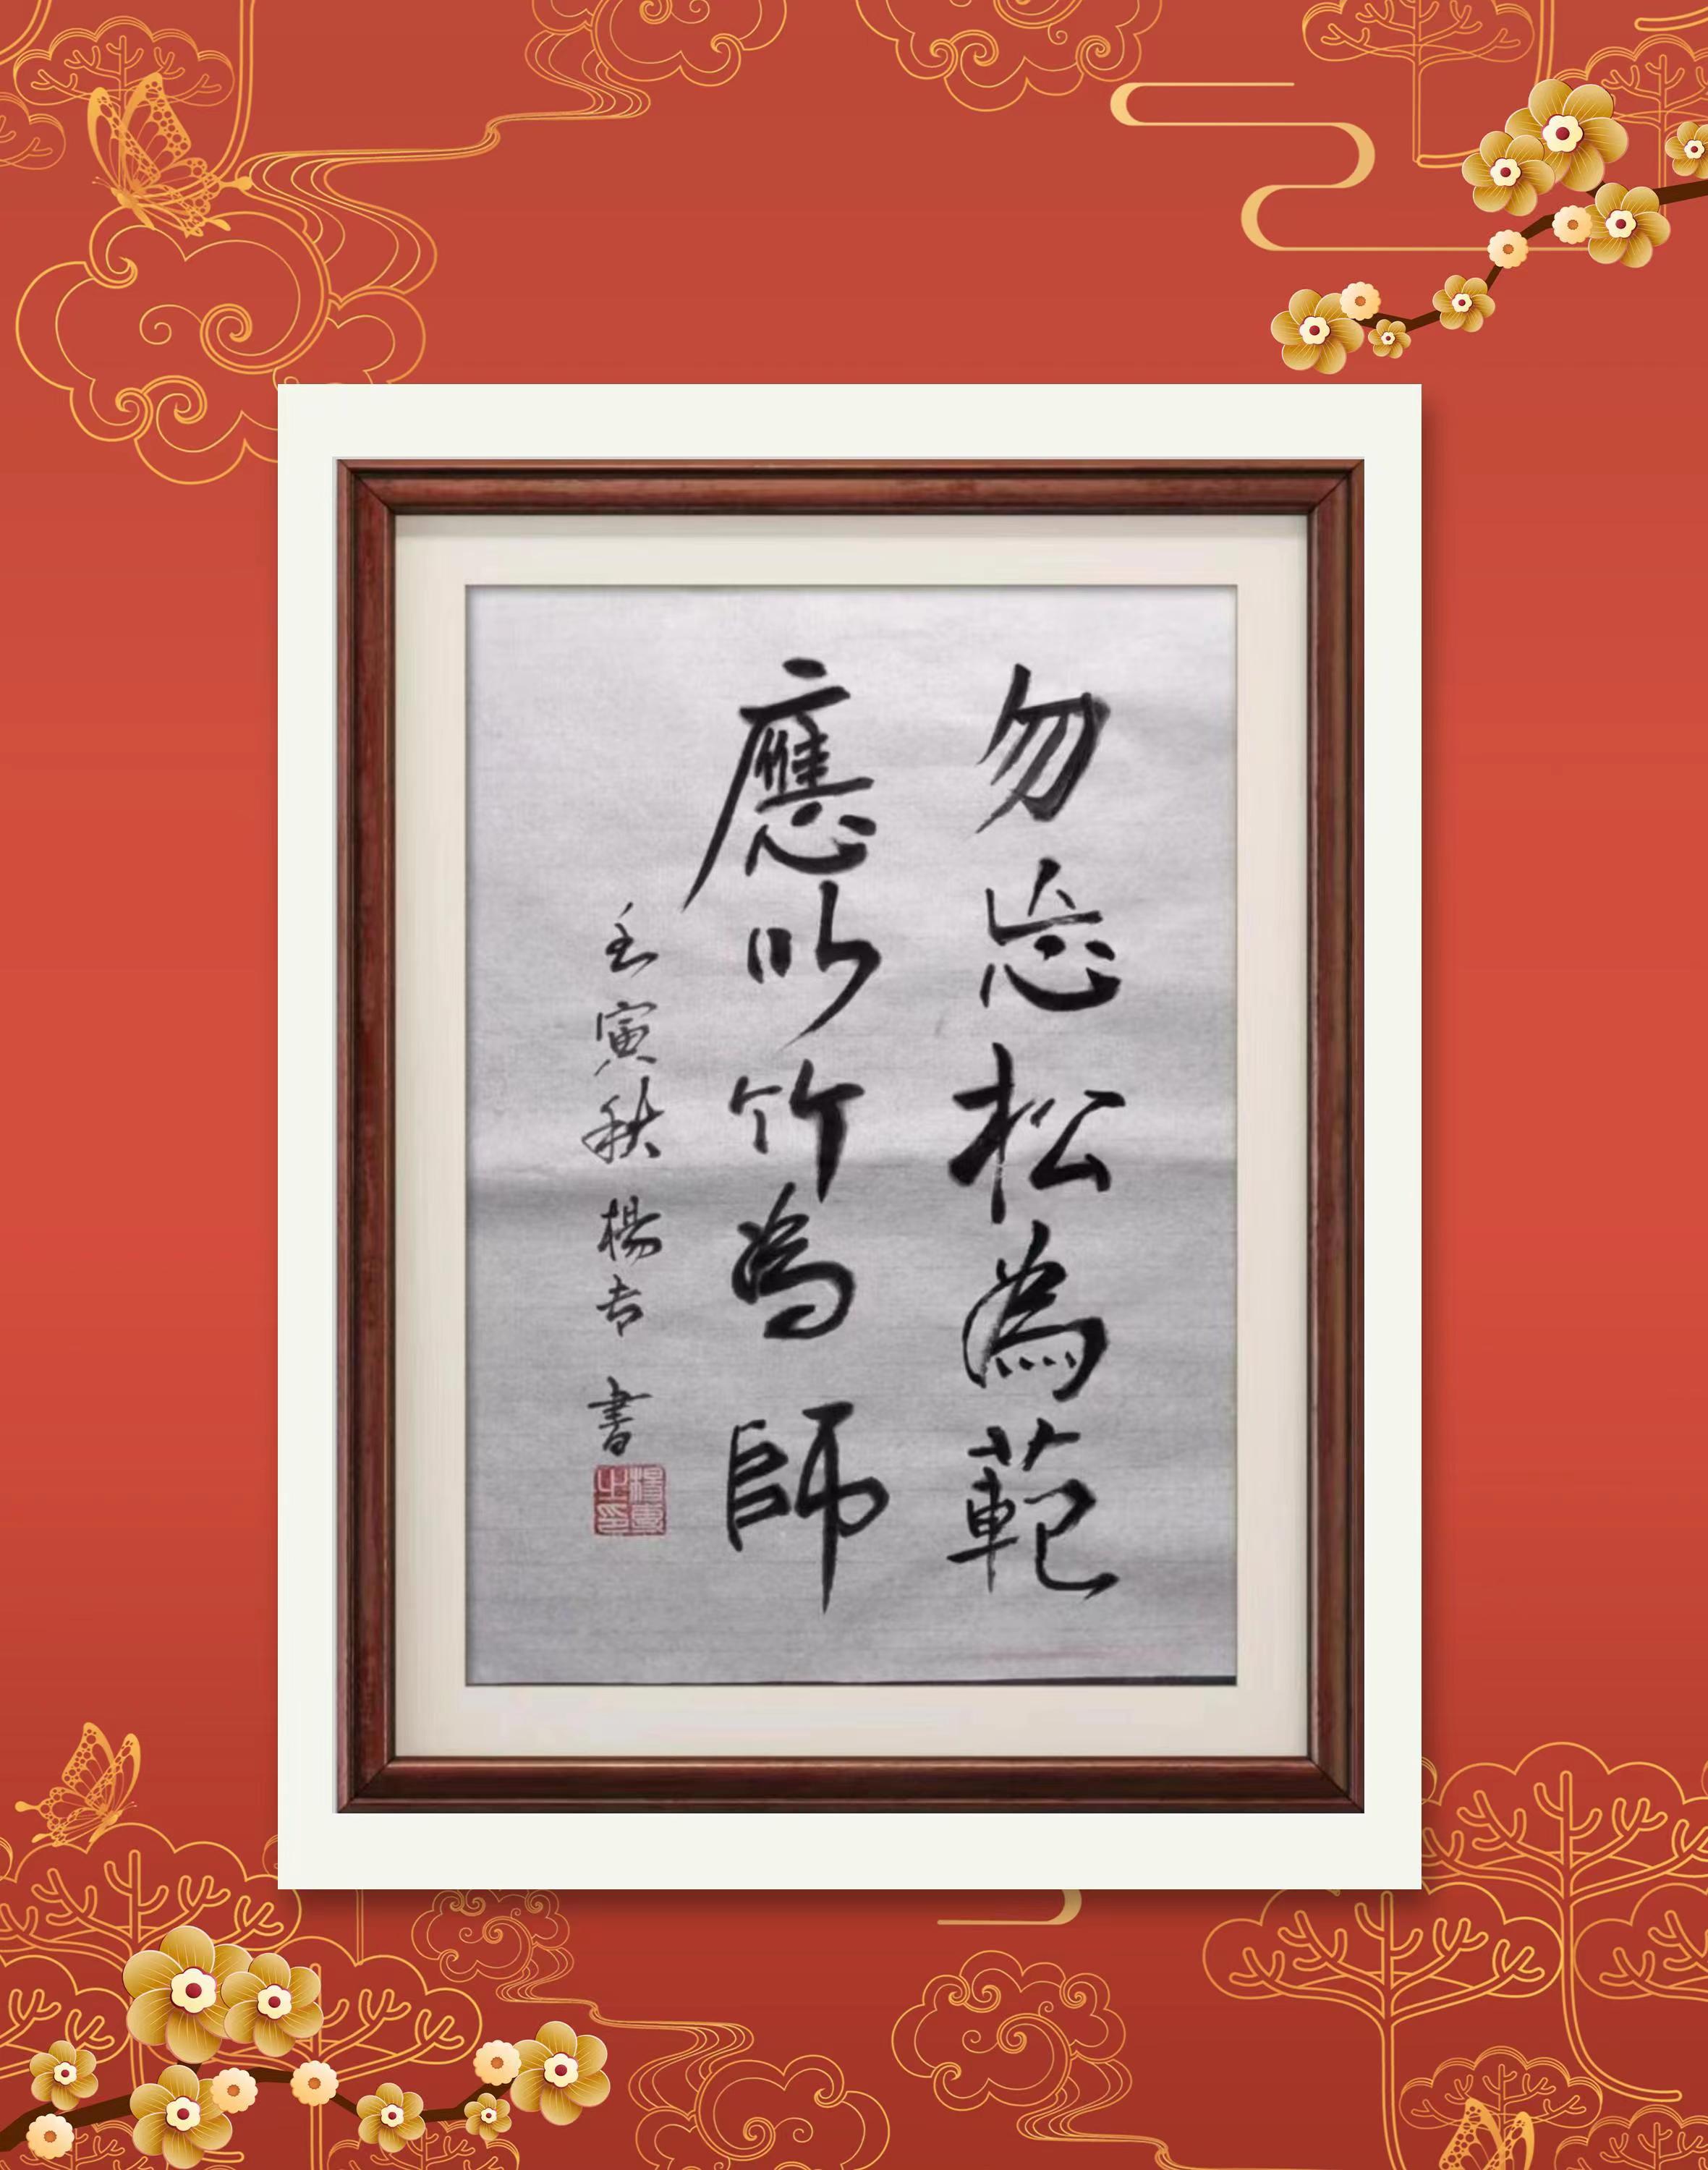 勿忘松為範
應以竹為師
壬寅秋 楊 書